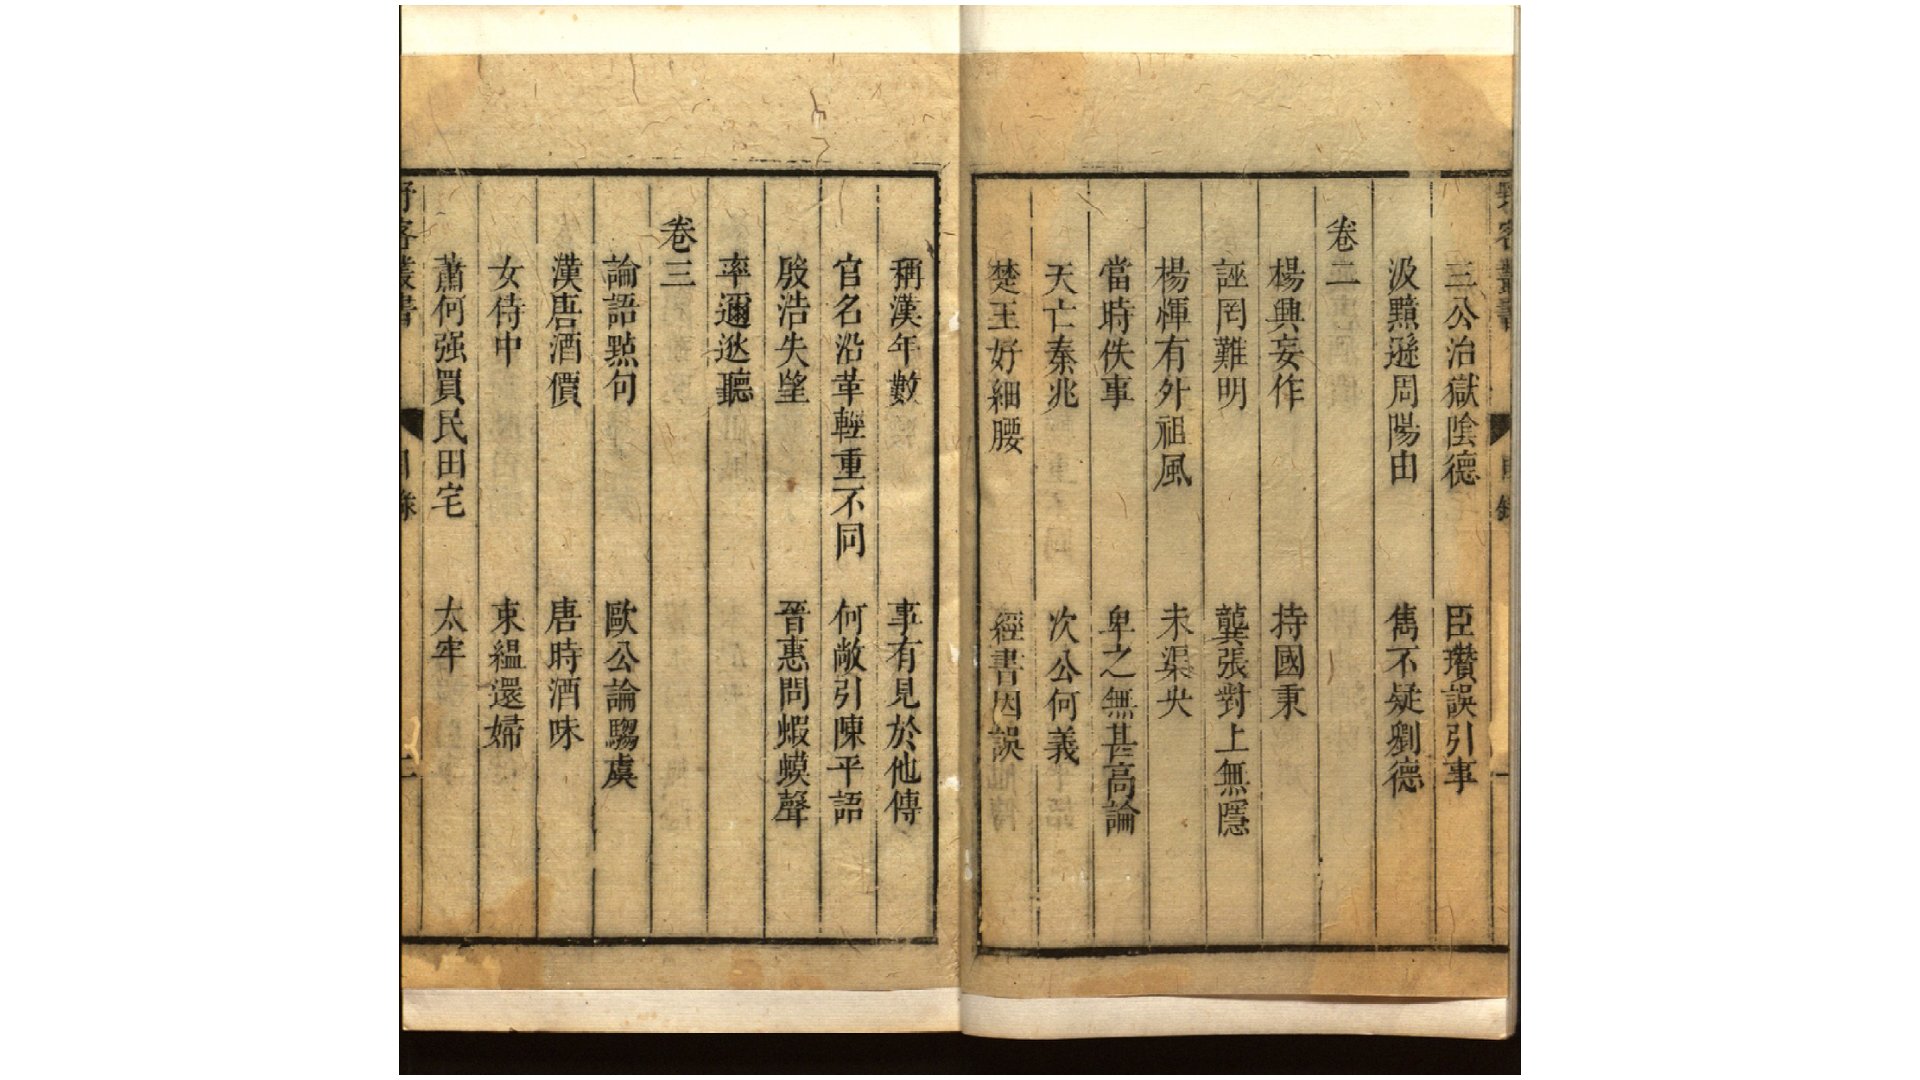 三公治獄陰德　臣瓚誤引事
汲黯遜周陽由　雋不疑劉德
卷二
楊興妄作　持國秉
誣罔難明　龔張對上無隱
楊惲有外祖風　未渠央
當時佚事　卑之無甚高論
天亡秦兆　次公何義
楚王好細腰　經書因誤
稱漢年數　事有見於他傳
官名沿革輕重不同　何敞引陳平語
殷浩失望　晉惠問蝦蟆聲
率邇逖聽
卷三
論語點句　歐公論騶虞
漢唐酒價　唐時酒味
女侍中　束緼還婦
蕭何强買民田宅　太牢